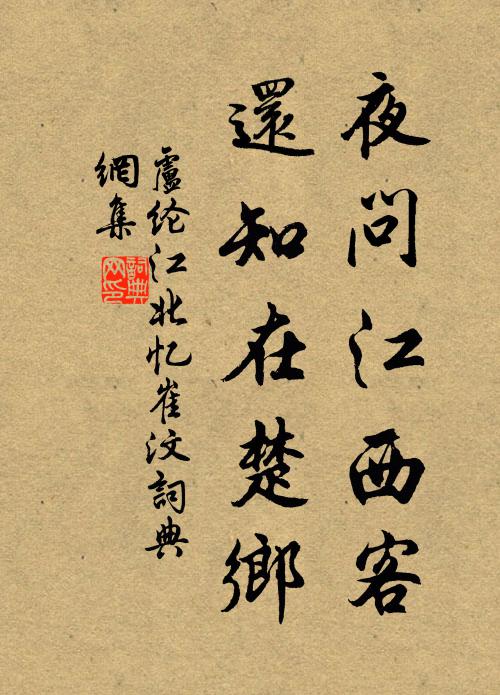 夜问江西客
還知在楚鄉
盧纶江北忆崔汶詞典
網集
詞典
网印